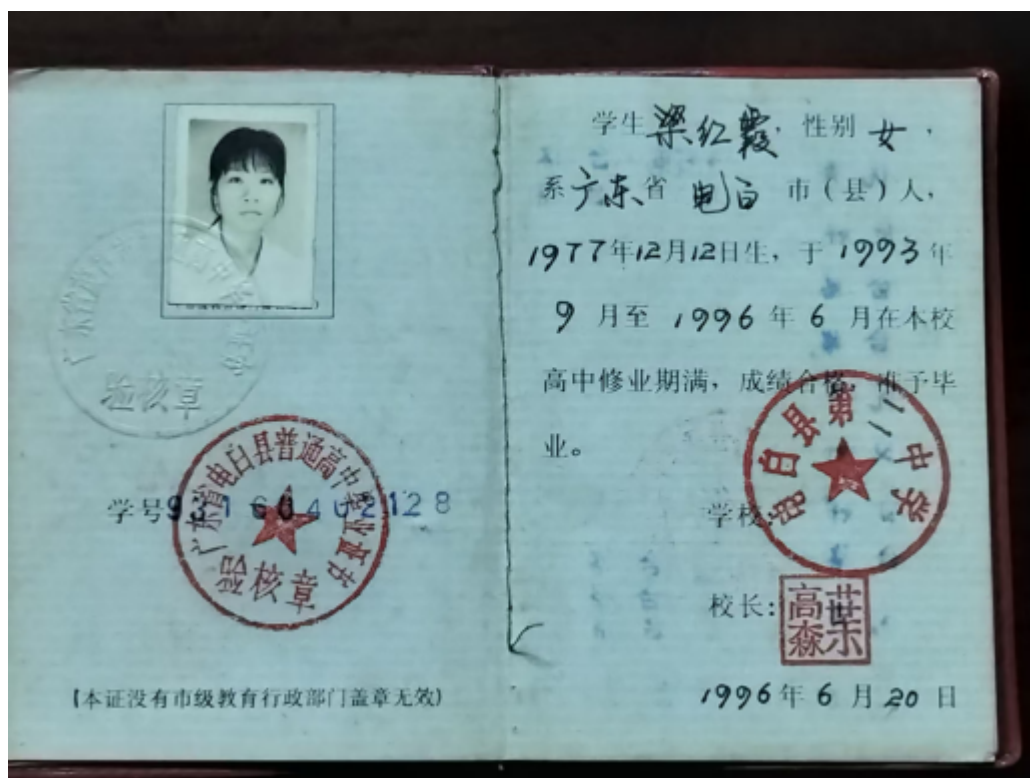 广东省
验核章
广东省电白县普通高中毕业证书
验核章
学号931660402128
(本证没有市级教育行政部门盖章无效)
学生梁红霞，性别女，
系广东省电白市(县)人，
1977年12月12日生，于1993年
9月至1996年6月在本校
高中修业期满，成绩合格，准予毕
业。
电白县第二中学
学校：
校长：
叶高森
1996年6月20日